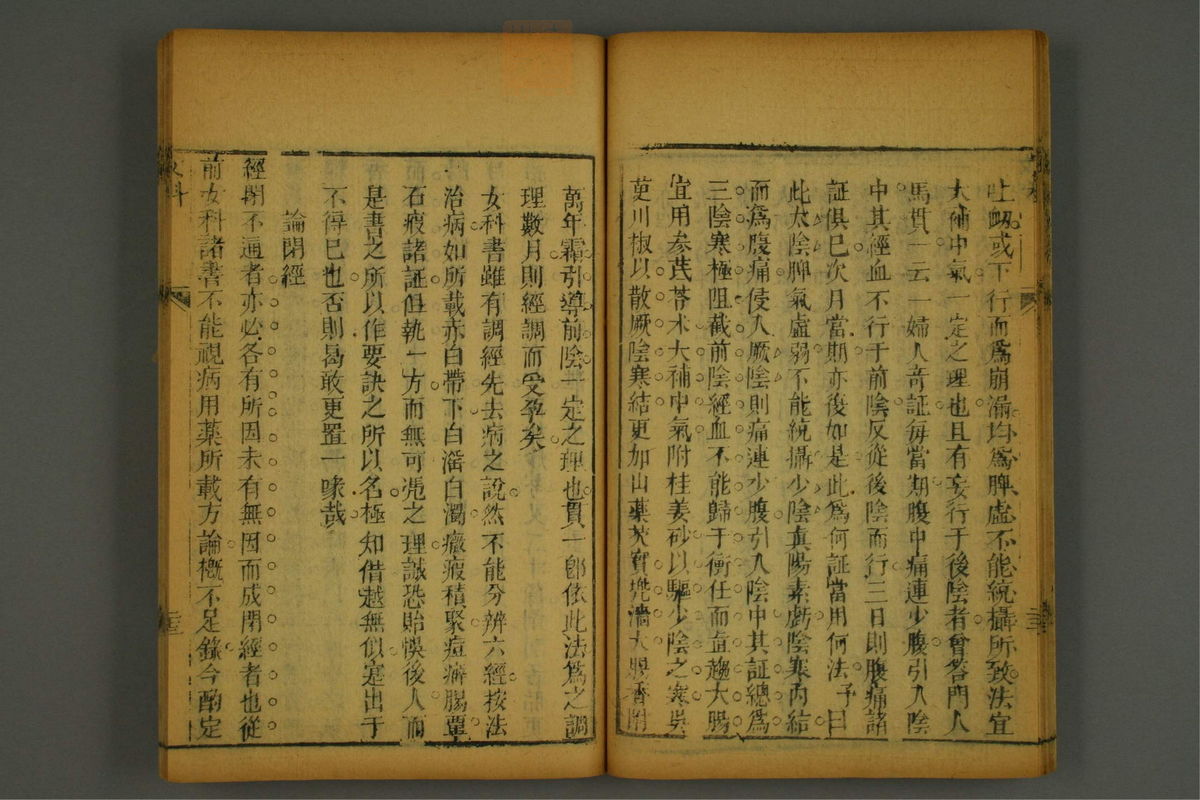 吐衄或下行而為崩漏均為脾虛不能統攝所致法宜
大補中氣一定之理也且有妄行于後陰者曾答門人
馬貫一云一婦人奇証每當期腹中痛連少腹引入陰
中其經血不行于前陰反從後陰而行三日則腹痛諸
証俱已次月當期亦復如是此為何証當用何法予曰
此太陰脾氣虛弱不能統攝少陰真陽素虧陰寒內結
而為腹痛侵入厥陰則痛連少腹引入陰中其証總為
三陰寒極阻截前陰經血不能歸于衝任而直趨大腸
宜用參芪苓朮大補中氣附桂姜砂以驅少陰之寒吳
萸川椒以散厥陰寒結更加山藥芡實兜濇大腸香附
萬年霜引導前陰一定之理也貫一卽依此法為之調
理數月則經調而受孕矣
女科書雖有調經先去病之說然不能分辨六經按法
治病如所載赤白帶下白濇白濁癥瘕積聚痘癖腸覃
石瘕諸証但執一方而無可凴之理誠恐貽悞後人而
是書之所以作要訣之所以名極知借越無似寔出于
不得已也否則曷敢更置一喙哉
論閉經
經閉不通者亦必各有所因未有無因而成閉經者也從
前女科諸書不能視病用藥所載方論概不足錄今酌定
女科